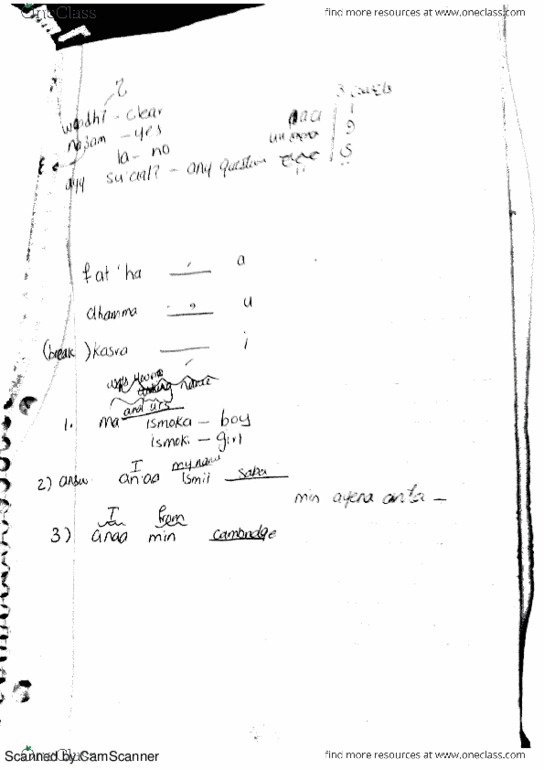 OneClass
find more resources at www.oneclass.com
2
3 vowels
waadhi - clear
na3am - yes
la - no
ayy su'aal? - any question
fat'ha a
dhamma u
(break) kasra i
and urs
1. ma ismoka - boy
ismoki - girl
I my name
2) answ anaa ismii saba
min ayena anta -
I from
3) anaa min cambridge
Scanned by CamScanner
OneClass
find more resources at www.oneclass.com